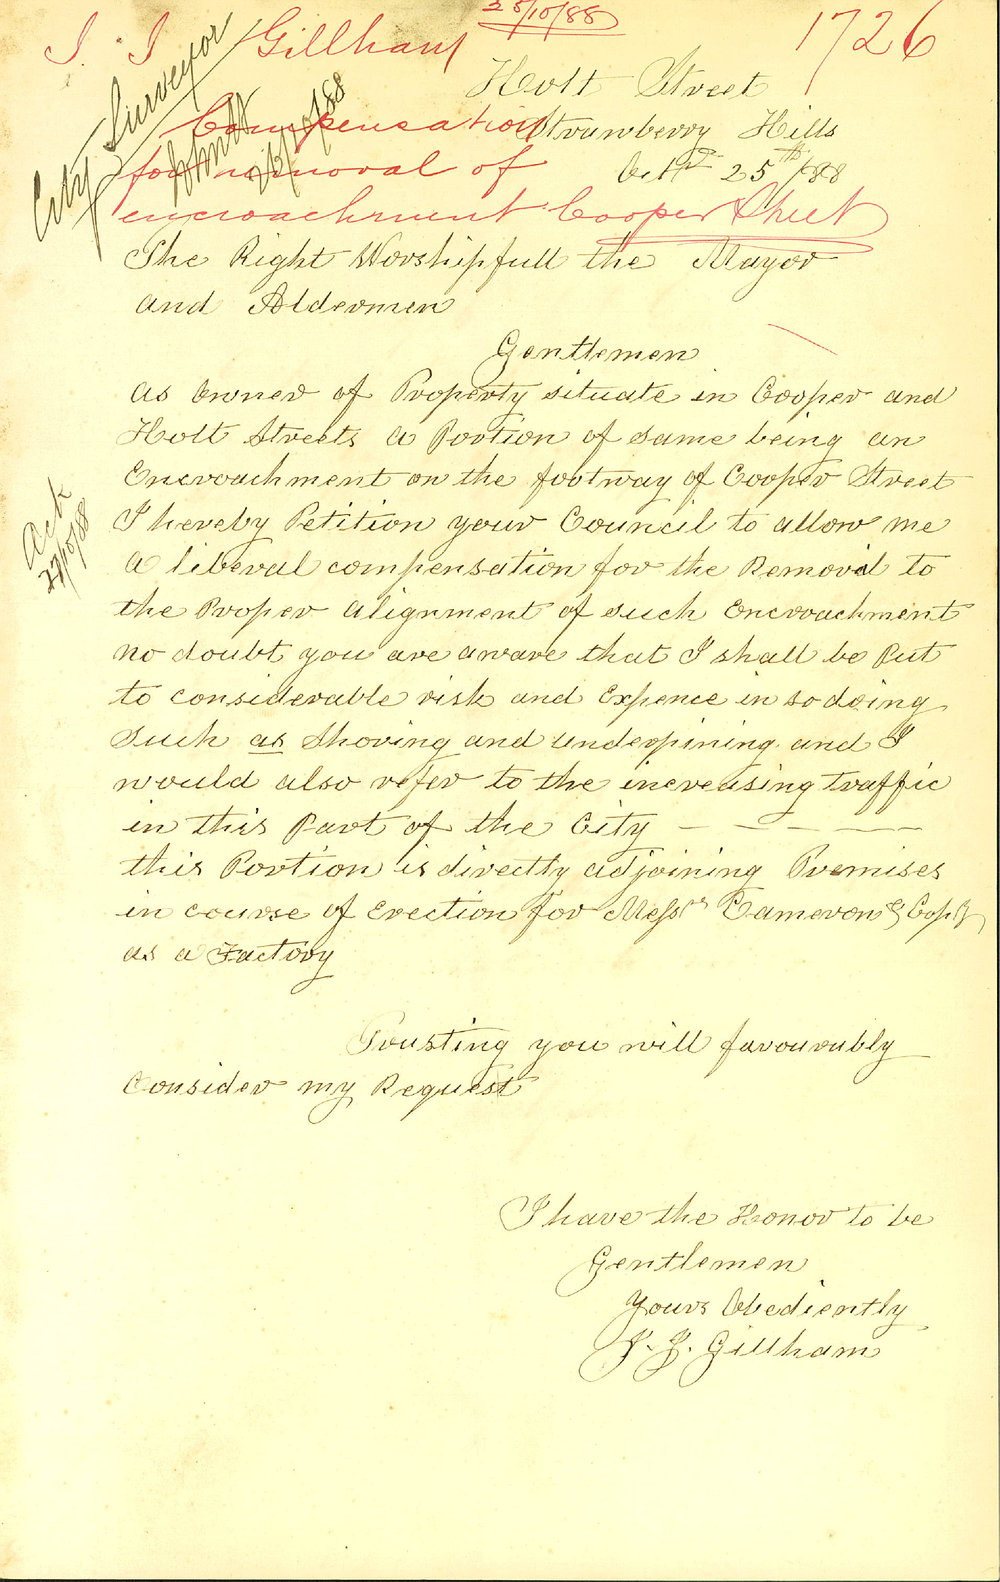 25/10/88
J. J. Gillham 1726
City Surveyor
26/10/88
Holt Street
Strawberry Hills
Octr 25th /88
Compensation
for removal of
encroachment Cooper Street
The Right Worshipfull the Mayor
and Aldermen
Gentlemen
as Owner of Property situate in Cooper and
Holt Streets a Portion of same being an
Encroachment on the footway of Cooper Street
I hereby Petition your Council to allow me
a liberal compensation for the Removal to
the Proper alignment of such Encroachment
no doubt you are aware that I shall be Put
to considerable risk and Expence in so doing
such as Shoving and underpining and I
would also refer to the increasing traffic
in this Part of the City — — — — —
this Portion is directly adjoining Premises
in course of Erection for Messrs Cameron & Copy
as a Factory
Ack
27/10/88
Trusting you will favourably
Consider my Request
I have the Honor to be
Gentlemen
Yours Obediently
J. J. Gillham